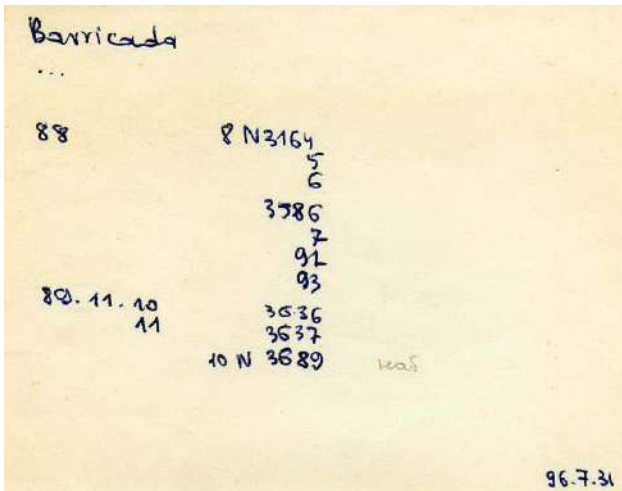 Barricada
...
88 8 N3164
5
6
3586
7
91
93
89.11.10 3636
11 3637
10 N 3689
96.7.31